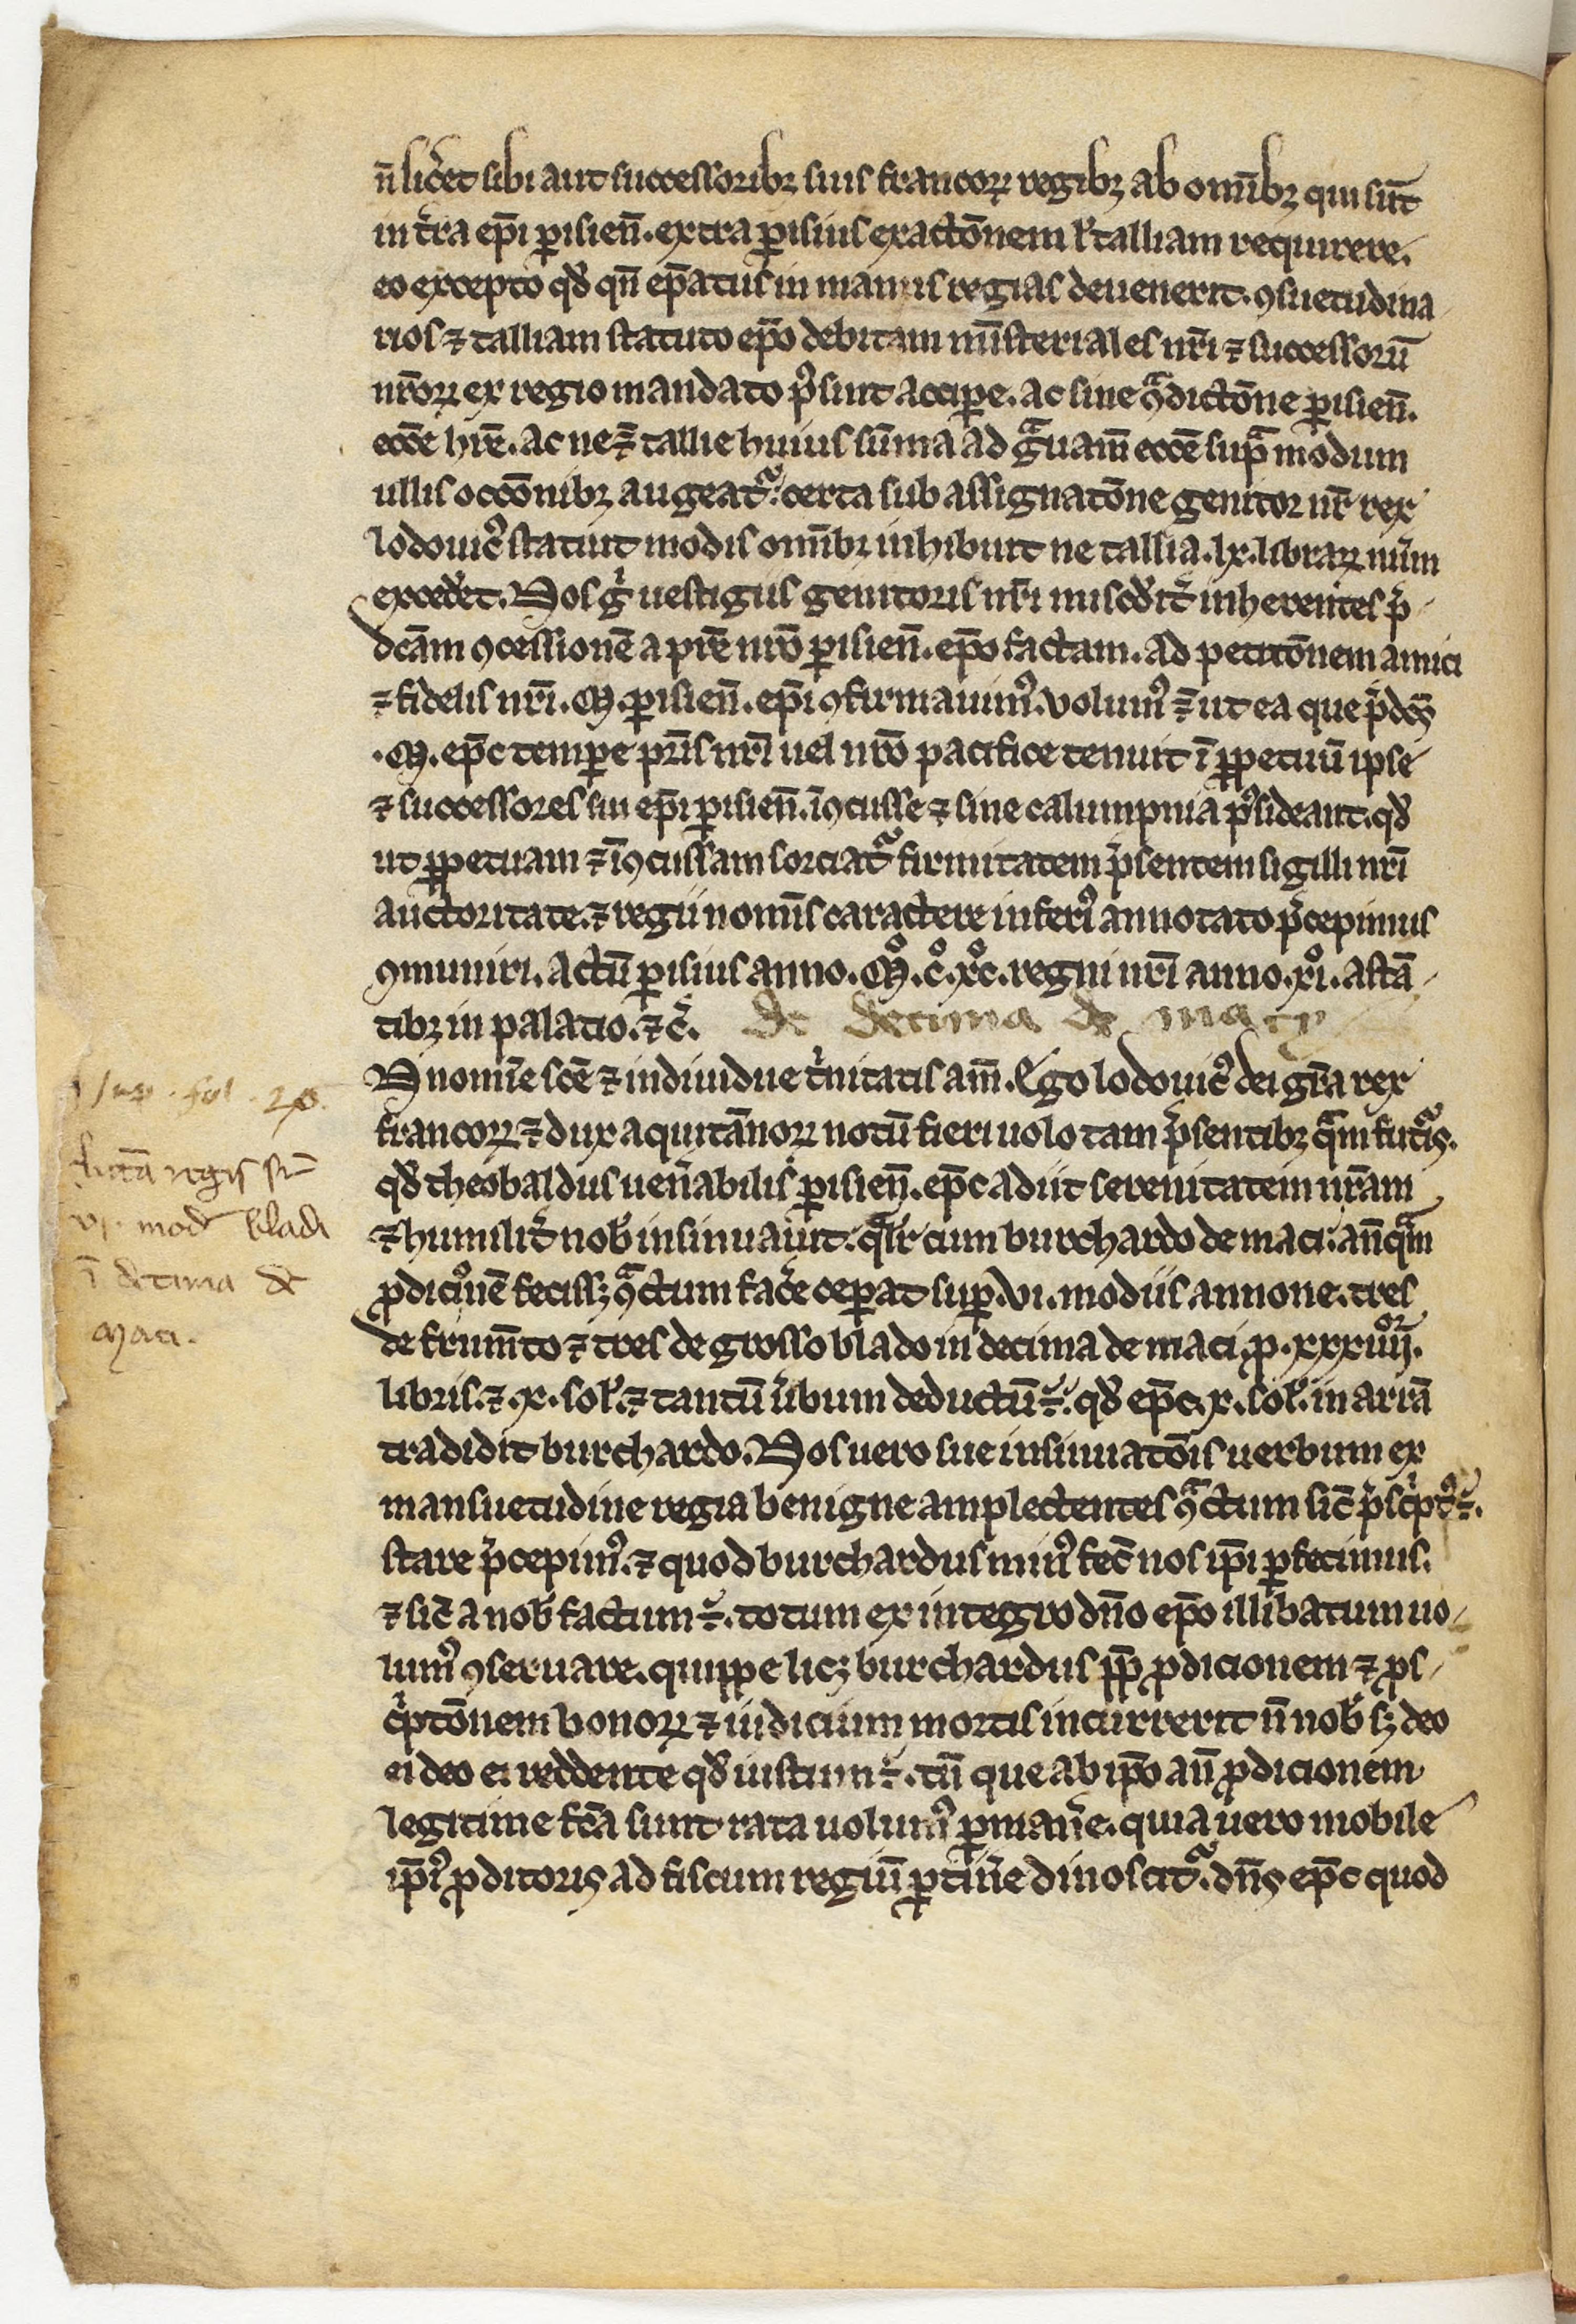 n̄ lic̄et sibi aut successoribꝫ suis francoꝝ regibꝫ ab om̄ibꝫ qui sūt
in t̄ra ep̄i ꝑisieñ. extra ꝑisius exactōnem ł talliam requirere.
eo excepto qđ qn̄ ep̄atus in manus regias deuenerit. ꝯsuetudina
rios ⁊ talliam statuto ep̄o debitam mīsteriales nr̄i ⁊ successorū
nr̄oꝝ ex regio mandato p᷒sunt acciꝑe. ac sine ꝯᵃdictōne ꝑisieñ.
ecc̄e hr̄e. ac ne ⁊̄ tallie huius sūma ad gᵃuam̄ ecc̄e supᵃ modum
ullis occōnibꝫ augeatᷣ. certa sub assignatōne genitor nr̄ rex
lodouic᷒ statuit modis om̄ibꝫ inhibuit ne tallia. lx. libraꝝ nūm
exced̄et. Nos gͥ uestigiis genitoris nr̄i misc̄dit᷑ inherentes p̄
dc̄am ꝯcessionē a pr̄e nr̄o ꝑisieñ. ep̄o factam. ad petitōnem amici
⁊ fidelis nr̄i. M. ꝑisieñ. ep̄i ꝯfirmauim᷒. volum᷒ ⁊̄ ut ea que p̄dc̄s
.M. ep̄c temꝑe pr̄is nr̄i uel nr̄o pacifice tenuit ī ꝑpetuū ipse
⁊ successores sui ep̄i ꝑisieñ. īꝯcusse ⁊ sine calumpnia p᷒sideant. qđ
ut ꝑpetuam ⁊ īꝯcussam sorciatᷣ firmitatem p̄sentem sigilli nr̄i
auctoritate. ⁊ regii nom̄is caractere inferi᷒ annotato p̄cepimus
ꝯmuniri. actū ꝑisius anno. M͐. c͐. xc͐. regni nr̄i anno. xͦi. astā
tibꝫ in palatio. ⁊ c̄.
De decima de macy
Jn nomīe sc̄e ⁊ indiuidue tͥnitatis am̄. Ego lodouic᷒ dei gr̄a rex
francoꝝ ⁊ dux aquitānoꝝ notū fieri uolo tam p̄sentibꝫ qᵃm futᷣis.
qđ theobaldus uen̄abilis ꝑisieñ. ep̄c adiit serenitatem nr̄am
⁊ humilit᷑ nob̄ insinuauit. qᵃlr̄ cum burchardo de maci. an̄qᵃm
ꝓdiciōnē fecissꝫ ꝯᵃctum fac̄e ceꝑat suꝑ. vi. modiis annone. tres
de frum̄to ⁊ tres de grosso blado in decima de maci. ꝓ. xxxiiiiᵒʳ.
libris. ⁊. x. sol̄. ⁊ tantū ūbum deductū ÷. qđ ep̄c. x. sol̄. in arrā
tradidit burchardo. Nos uero sue insinuatōis uerbum ex
mansuetudine regia benigne amplectentes ꝯᵃctum sic̄ p̄scͥpt᷒ ÷.
stare p̄cepim᷒. ⁊ quod burchardus min᷒ fec̄ nos ip̄i ꝑfecimus.
⁊ sic̄ a nob̄ factum ÷. totum ex integro dn̄o ep̄o illibatum uo
lum᷒ ꝯseruare. quippe licꝫ burchardus ꝓp̄ ꝓdicionem ⁊ ꝓs
cͥptōnem bonoꝝ ⁊ iudicium mortis incurrerit n̄ nob̄ sꝫ deo
ei deo ei reddente qđ iustum ÷. tn̄ que ab ip̄o an̄ ꝓdicionem
legitime fc̄a sunt rata uolum᷒ ꝑman̄e. quia uero mobile
ip̄i᷒ ꝓditoris ad fiscum regiū ꝑtin̄e dinoscitᷣ. dn̄s ep̄c quod
sup. fol. 20.
littā regis sr̄
vi. mod bladi
ī decima de
Maci.